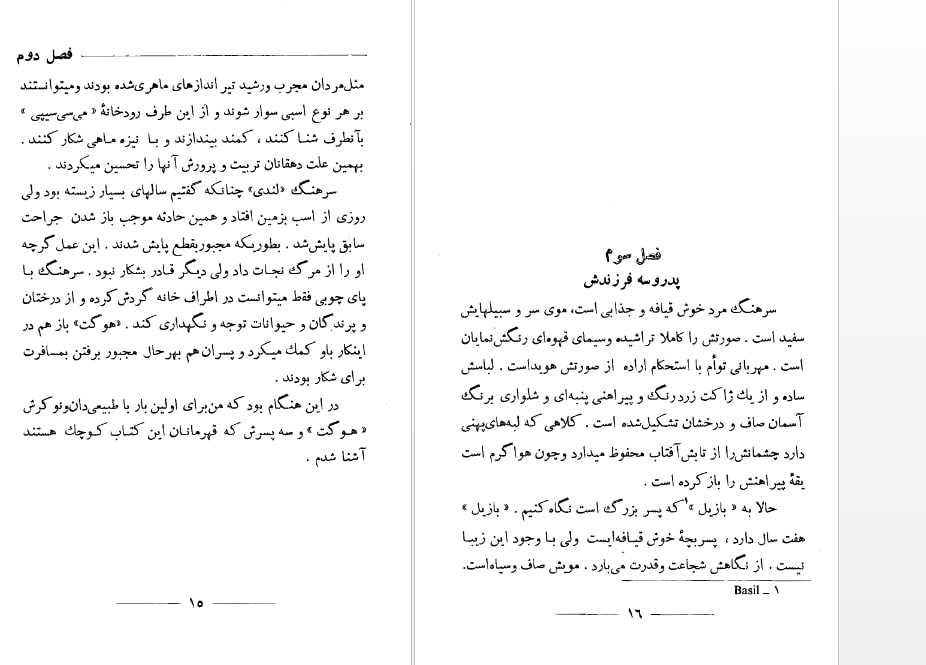 فصل دوم
مثل‌مردان مجرب ورشید تیر اندازهای ماهری‌شده بودند ومیتوانستند
بر هر نوع اسبی سوار شوند و از این طرف رودخانهٔ « می‌سی‌سیپی »
بآنطرف شنا کنند ، کمند بیندازند و با نیزه ماهی شکار کنند .
بهمین علت دهقانان تربیت و پرورش آنها را تحسین میکردند .
سرهنگ «لندی» چنانکه گفتیم سالهای بسیار زیسته بود ولی
روزی از اسب بزمین افتاد و همین حادثه موجب باز شدن جراحت
سابق پایش‌شد . بطوریکه مجبوربقطع پایش شدند . این عمل گرچه
او را از مرگ نجات داد ولی دیگر قادر بشکار نبود . سرهنگ با
پای چوبی فقط میتوانست در اطراف خانه گردش کرده و از درختان
و پرندگان و حیوانات توجه و نگهداری کند . «هوگت» باز هم در
اینکار باو کمک میکرد و پسران هم بهرحال مجبور برفتن بمسافرت
برای شکار بودند .
در این هنگام بود که من‌برای اولین بار با طبیعی‌دان‌ونوکرش
« هوگت » و سه پسرش که قهرمانان این کتاب کوچک هستند
آشنا شدم .
۱۵
فصل سوم
پدروسه فرزندش
سرهنگ مرد خوش قیافه و جذابی است، موی سر و سبیلهایش
سفید است . صورتش را کاملا تراشیده وسیمای قهوه‌ای رنگش‌نمایان
است . مهربانی توأم با استحکام اراده از صورتش هویداست . لباسش
ساده و از یک ژاکت زردرنگ و پیراهنی پنبه‌ای و شلواری برنگ
آسمان صاف و درخشان تشکیل‌شده است . کلاهی که لبه‌های‌پهنی
دارد چشمانش‌را از تابش‌آفتاب محفوظ میدارد وچون هواگرم است
یقهٔ پیراهنش را بازکرده است .
حالا به « بازیل »۱ که پسر بزرگ است نگاه‌کنیم . « بازیل »
هفت سال دارد ، پسربچهٔ خوش قیافه‌ایست ولی با وجود این زیبا
نیست . از نگاهش شجاعت وقدرت می‌بارد . مویش صاف وسیاه‌است.
۱ ـ Basil
۱۶